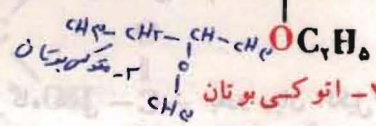 CH۳- CH۲- CH - CH۳
O
CH۳
۲- متوکسی بوتان
O C۲H۵
۲- اتوکسی بوتان